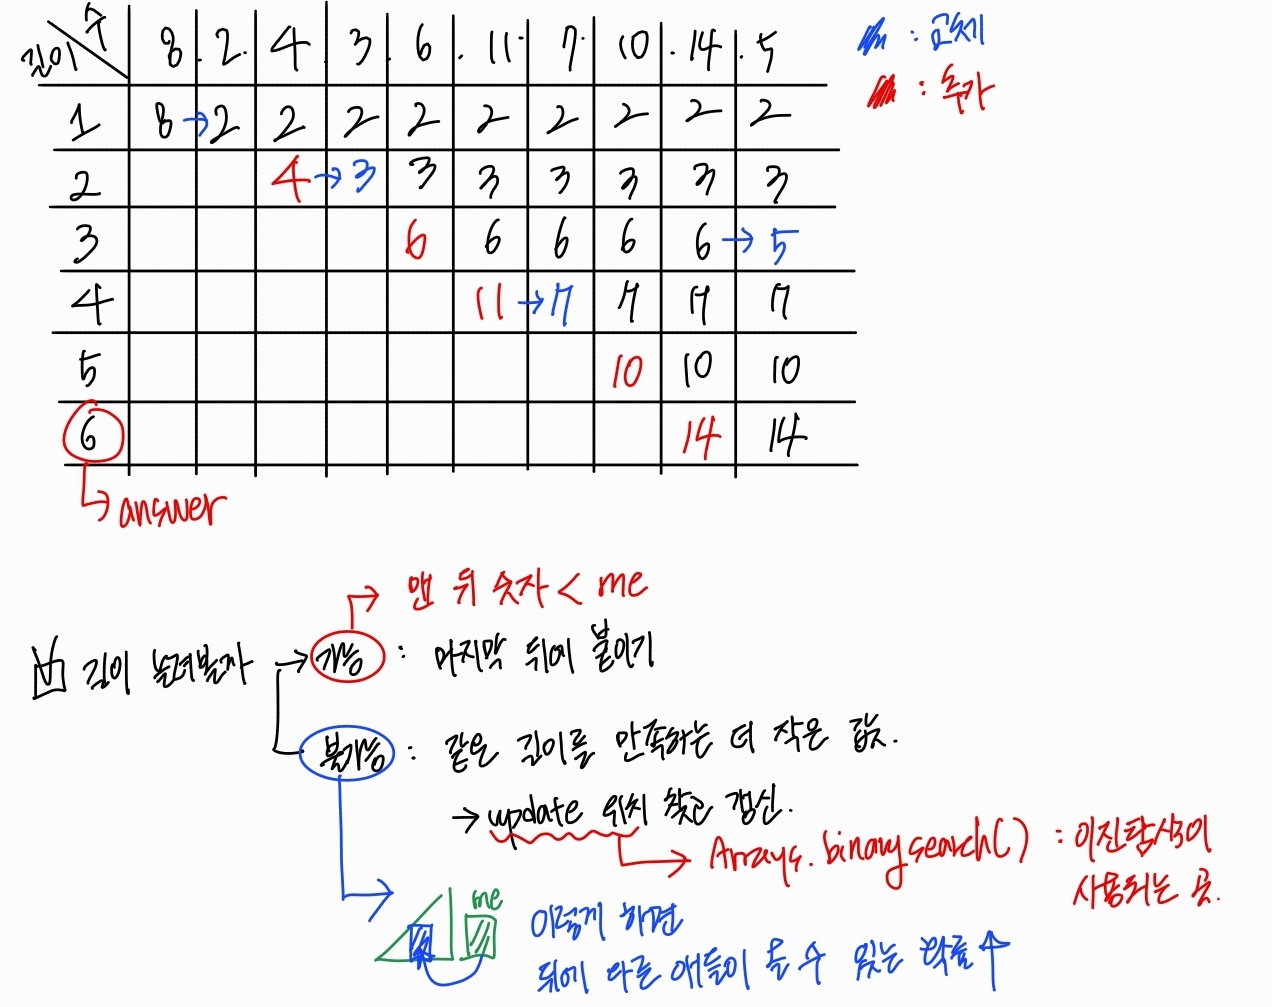 길이 수 8 2 4 3 6 11 7 10 14 5
1 8 → 2 2 2 2 2 2 2 2 2
2 4 → 3 3 3 3 3 3 3
3 6 6 6 6 6 → 5
4 11 → 7 7 7 7
5 10 10 10
6 14 14
answer
: 교체
: 추가
맨 뒤 숫자 < me
길이 늘려볼까 → 가능 : 마지막 뒤에 붙이기
불가능 : 같은 길이를 만족하는 더 작은 값.
→ update 위치 찾고 갱신.
Arrays.binarysearch() : 이진탐색이
사용되는 곳.
me
이렇게 하면
뒤에 다른 애들이 올 수 있는 확률 ↑